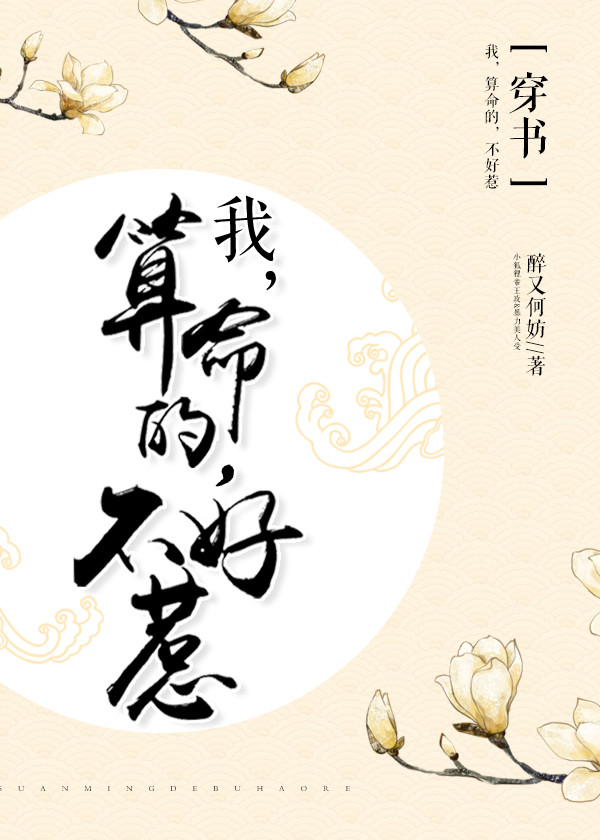 【穿书】
我,算命的,不好惹
醉又何妨//著
小狐狸帝王攻&暴力美人受
我,
算命的,
不好惹
SUANMINGDEBUHAORE